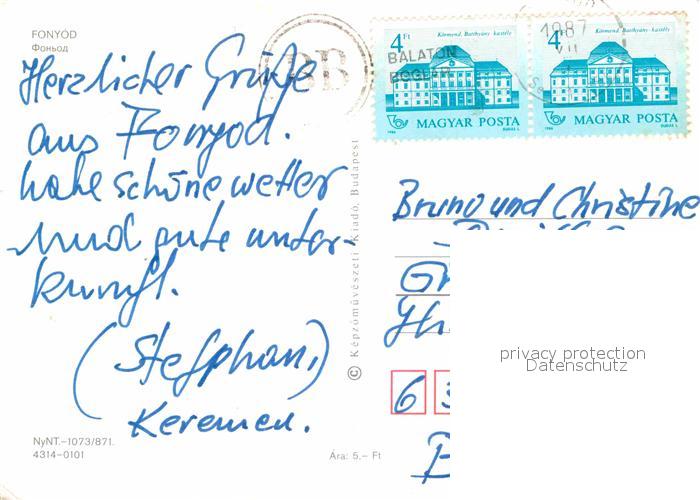 FONYÓD
Фоньод
Herzlicher Grüße
aus Fonyod.
habe schöne wetter
und gute unter-
kunft.
(Stefphan,)
Keremen.
NyNT.–1073/871.
4314–0101
Ára: 5,– Ft
© Képzőművészeti Kiadó, Budapest
BB
BALATON
BOGLÁR
4 Ft
Körmend, Batthyány-kastély
MAGYAR POSTA
1986
1987
VII
4
Körmend, Batthyány-kastély
MAGYAR POSTA
1986
Bruno und Christine
6
privacy protection
Datenschutz